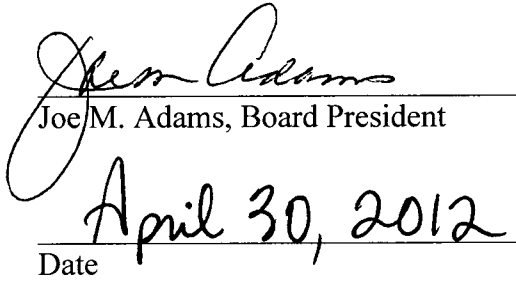 Joe M Adams
Joe M. Adams, Board President
April 30, 2012
Date